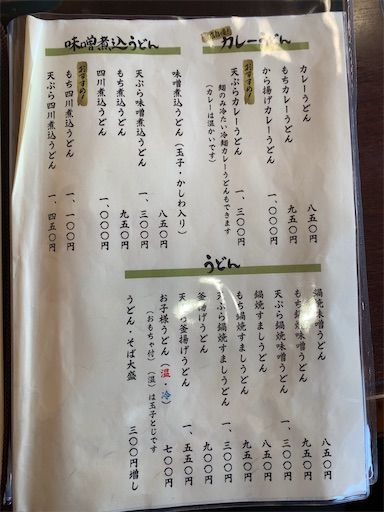 カレーうどん
カレーうどん 八五〇円
もちカレーうどん 九五〇円
から揚げカレーうどん 一、〇〇〇円
おすすめ!
天ぷらカレーうどん 一、三〇〇円
麺のみ冷たい冷麺カレーうどんもできます
(カレーは温かいです)
味噌煮込うどん
味噌煮込うどん(玉子・かしわ入り) 八五〇円
天ぷら味噌煮込うどん 一、三〇〇円
もち煮込うどん 九五〇円
四川煮込うどん 一、〇〇〇円
おすすめ!
もち四川煮込うどん 一、一〇〇円
天ぷら四川煮込うどん 一、四五〇円
うどん
鍋焼味噌うどん 八五〇円
もち鍋焼味噌うどん 九五〇円
天ぷら鍋焼味噌うどん 一、三〇〇円
鍋焼すましうどん 八五〇円
もち鍋焼すましうどん 九五〇円
天ぷら鍋焼すましうどん 一、三〇〇円
釜揚げうどん 九〇〇円
天ぷら釜揚げうどん 一、五五〇円
お子様うどん(温・冷) 七〇〇円
(おもちゃ付)(温)は玉子とじです
うどん・そば大盛 三〇〇円増し